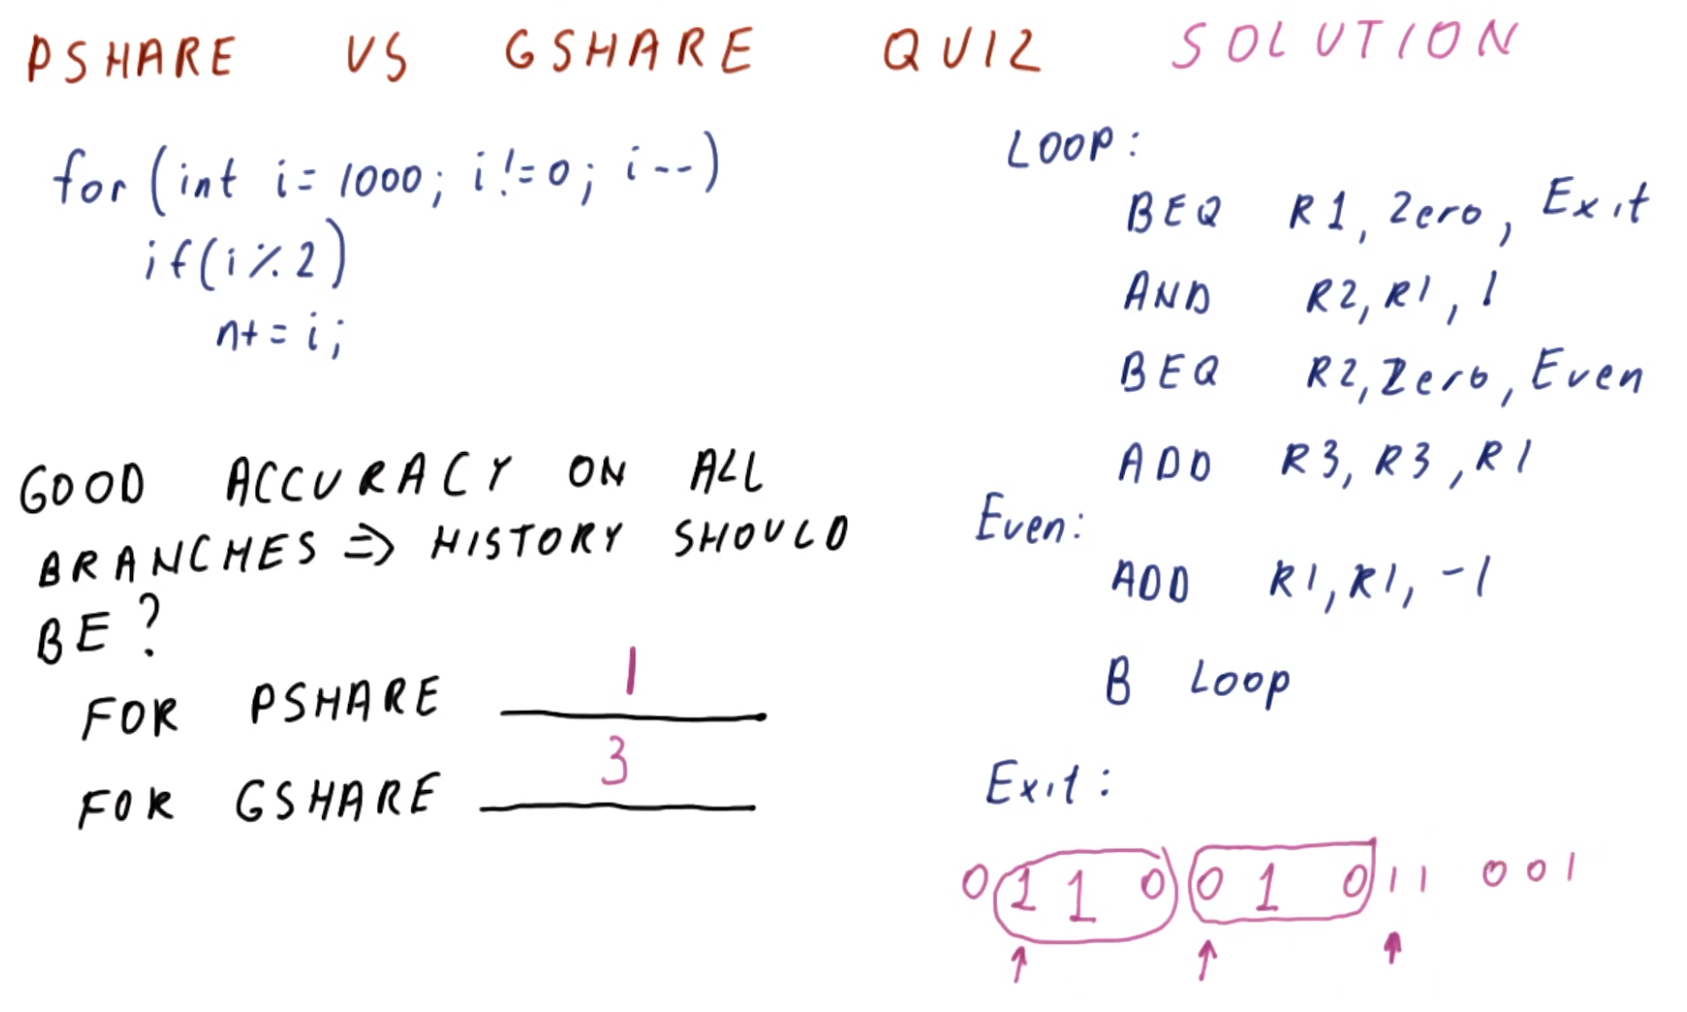 PSHARE VS GSHARE QUIZ SOLUTION
for (int i= 1000; i!=0; i--)
if(i%2)
n+=i;
GOOD ACCURACY ON ALL
BRANCHES => HISTORY SHOULD
BE?
FOR PSHARE 1
FOR GSHARE 3
LOOP:
BEQ R1, Zero, Exit
AND R2, R1, 1
BEQ R2, Zero, Even
ADD R3, R3, R1
Even:
ADD R1, R1, -1
B Loop
Exit:
0 1 1 0 0 1 0 1 1 0 0 1